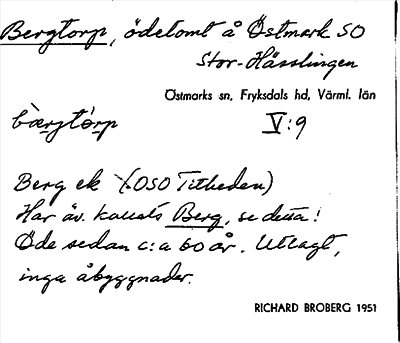 Bergtorp, ödetomt å Östmark SO
Stor-Hässlingen
Östmarks sn, Fryksdals hd, Värml. län
bærgtórp V:9
Berg ek (OSO Titheden)
Har äv. kallats Berg, se detta!
Öde sedan c:a 60 år. Utlagt,
inga åbyggnader.
RICHARD BROBERG 1951